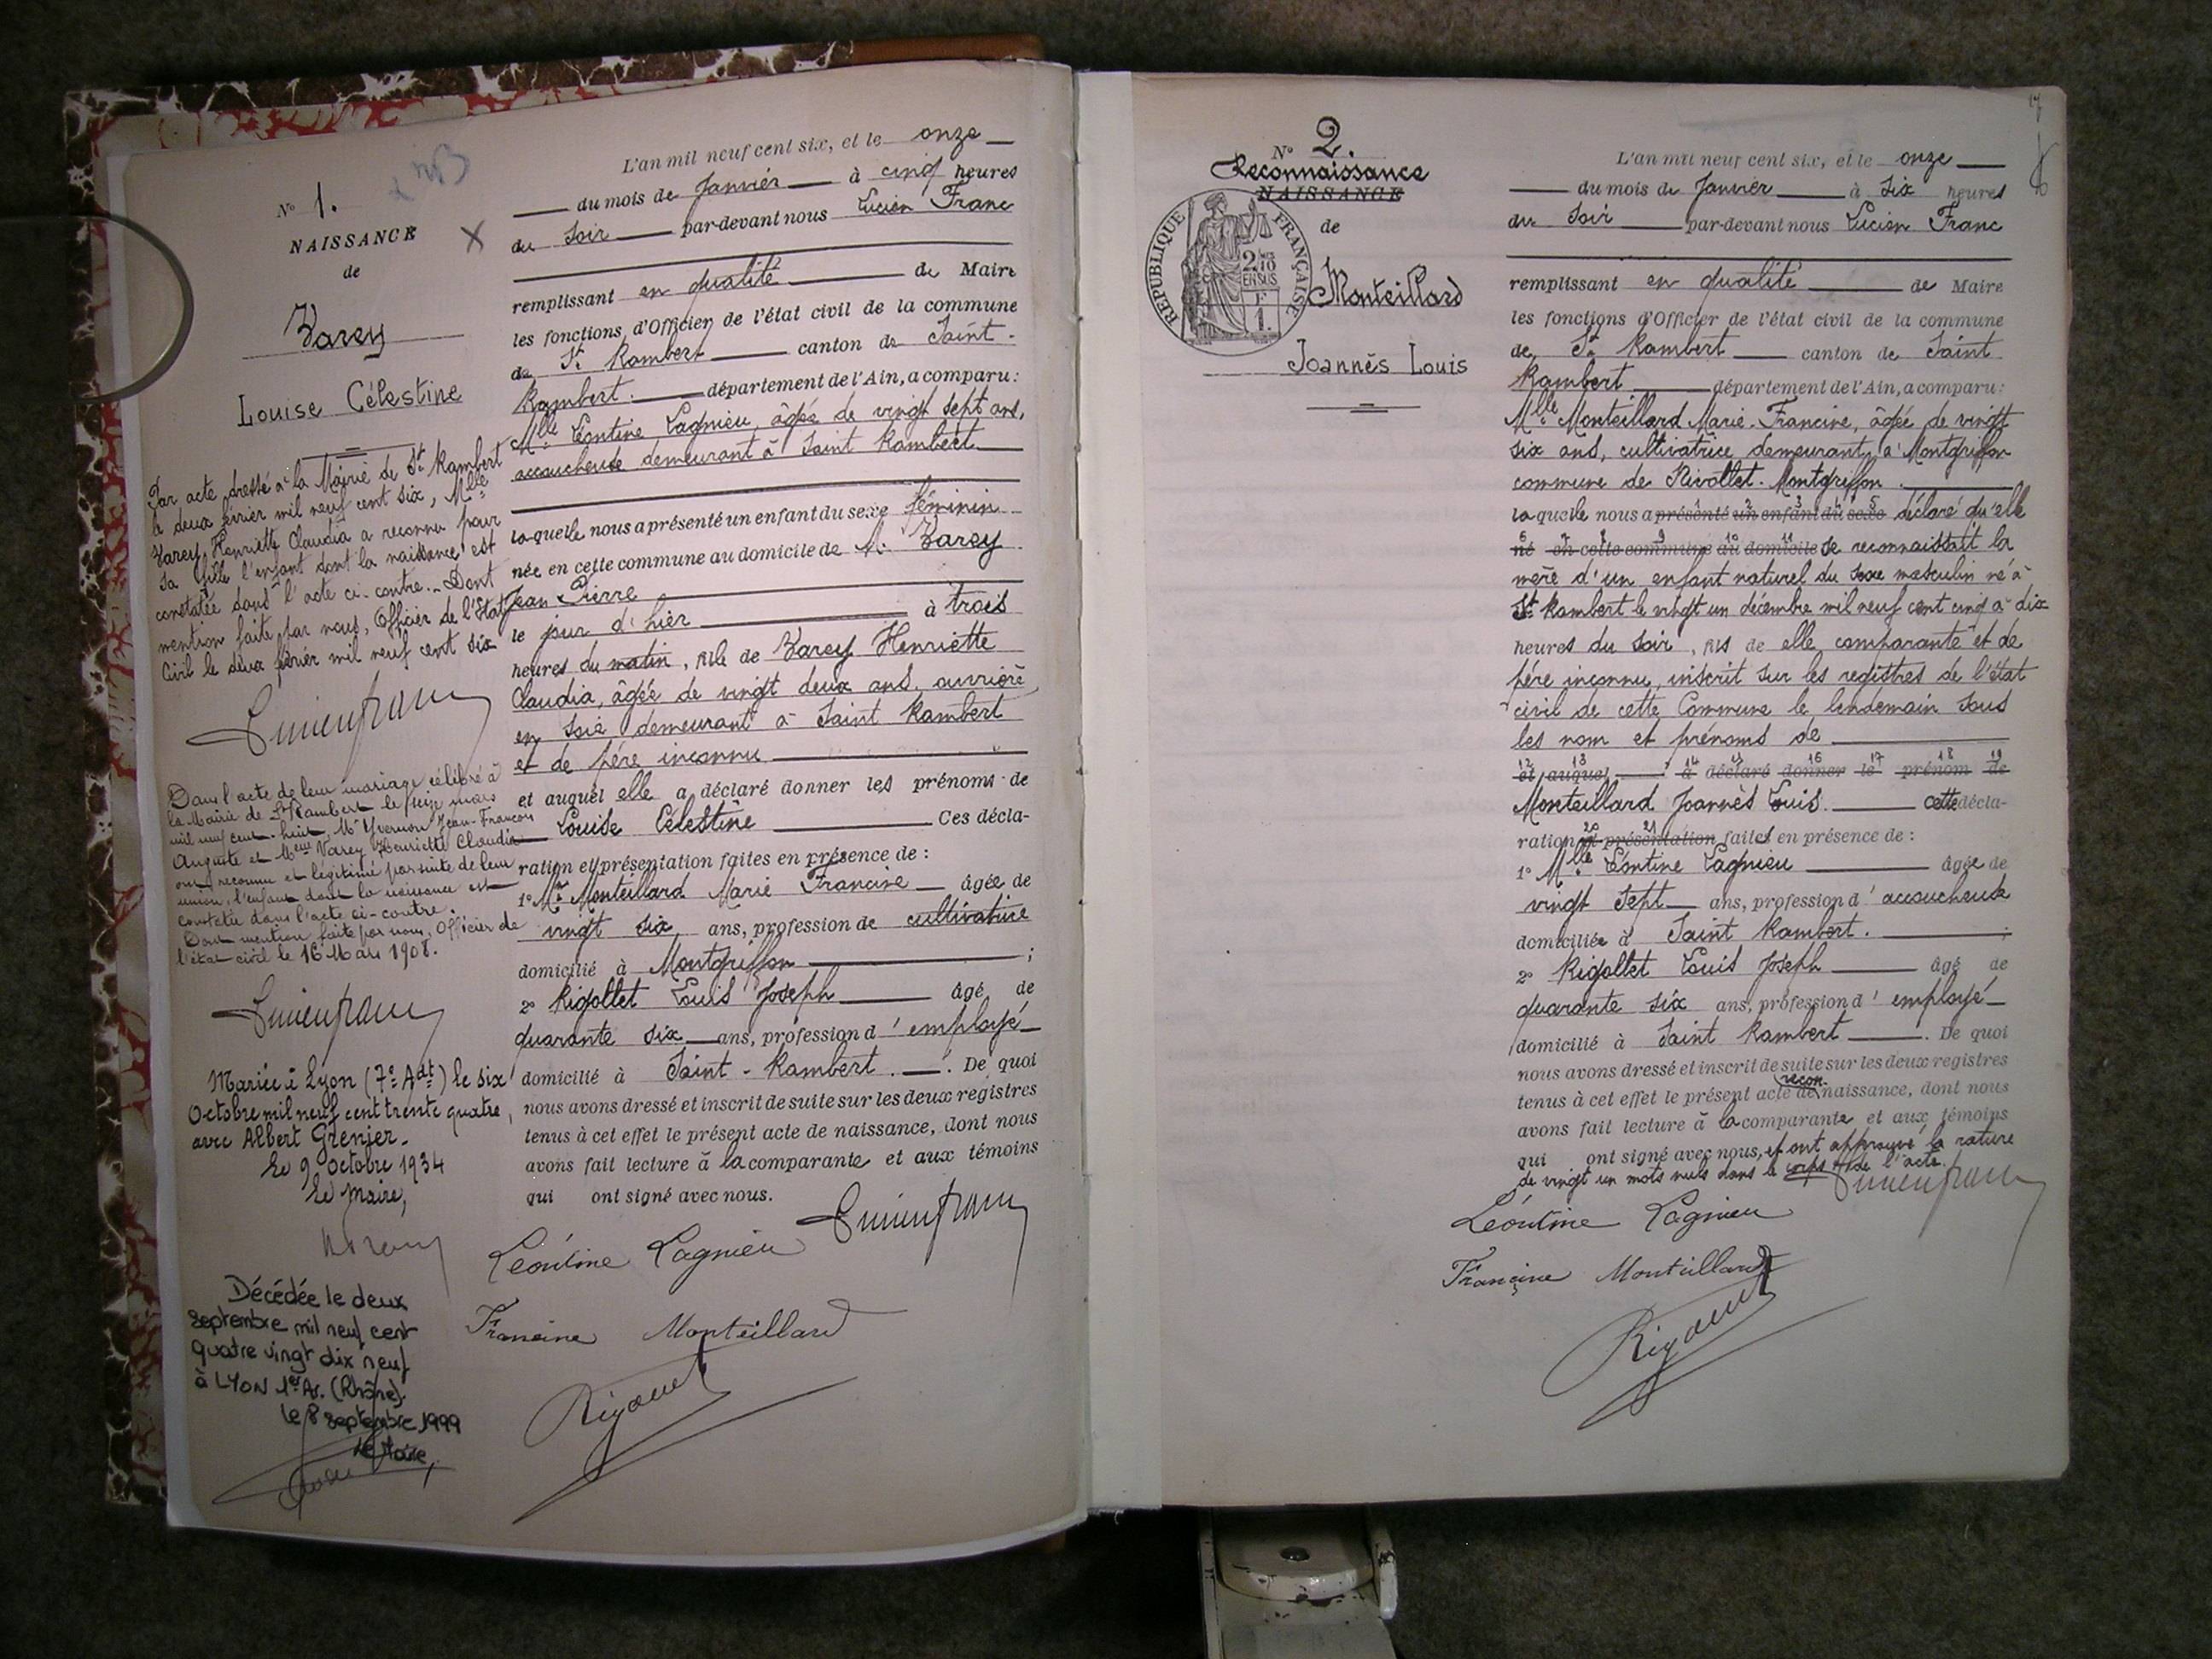 N° 1.
NAISSANCE
de
Varey
Louise Célestine
Par acte dressé à la Mairie de St Rambert
le deux février mil neuf cent six, Mlle
Varey Henriette Claudia a reconnu pour
sa fille l'enfant dont la naissance est
constatée dans l'acte ci-contre. - Dont
mention faite par nous, Officier de l'Etat
Civil le deux février mil neuf cent six
Lucien Franc
Dans l'acte de leur mariage célébré à
la Mairie de St Rambert le seize mars
mil neuf cent huit, Mr Yvernon Jean-François
Auguste et Melle Varey Henriette Claudia
ont reconnu et légitimé par suite de leur
union, l'enfant dont la naissance est
constatée dans l'acte ci-contre.
Dont mention faite par nous, Officier de
l'état civil le 16 Mars 1908.
Lucien Franc
Mariée à Lyon (7e Adt) le six
Octobre mil neuf cent trente quatre,
avec Albert Grenier.
Le 9 octobre 1934
Le Maire,
Décédée le deux
septembre mil neuf cent
quatre vingt dix neuf
à LYON 1er Ar. (Rhône).
le 8 septembre 1999
Le Maire,
L'an mil neuf cent six, et le onze
du mois de Janvier à cinq heures
du soir par-devant nous Lucien Franc
remplissant en qualité de Maire
les fonctions d'Officier de l'état civil de la commune
de St Rambert canton de Saint-
Rambert. département de l'Ain, a comparu:
Mlle Léontine Lagnieu, âgée de vingt sept ans,
accoucheuse demeurant à Saint Rambert
laquelle nous a présenté un enfant du sexe féminin
née en cette commune au domicile de M. Varey
Jean Pierre
le jour d'hier à trois
heures du matin, fille de Varey Henriette
Claudia, âgée de vingt deux ans, ouvrière
en soie demeurant à Saint Rambert
et de père inconnu
et auquel elle a déclaré donner les prénoms de
Louise Célestine Ces décla-
ration et présentation faites en présence de :
1° Mlle Monteillard Marie Francine âgée de
vingt six ans, profession de cultivatrice
domicilié à Montgriffon ;
2° Rigollet Louis Joseph âgé de
quarante six ans, profession d'employé
domicilié à Saint-Rambert. De quoi
nous avons dressé et inscrit de suite sur les deux registres
tenus à cet effet le présent acte de naissance, dont nous
avons fait lecture à la comparante et aux témoins
qui ont signé avec nous.
Lucien Franc
Léontine Lagnieu
Francine Monteillard
Rigollet
N° 2.
Reconnaissance
NAISSANCE
de
Monteillard
Joannès Louis
REPUBLIQUE FRANÇAISE
2/10 EN SUS
F
1.
L'an mil neuf cent six, et le onze
du mois de Janvier à six heures
du soir par-devant nous Lucien Franc
remplissant en qualité de Maire
les fonctions d'Officier de l'état civil de la commune
de St Rambert canton de Saint
Rambert département de l'Ain, a comparu:
Mlle Monteillard Marie-Francine, âgée de vingt
six ans, cultivatrice, demeurant à Montgriffon
commune de Rivollet-Montgriffon.
laquelle nous a présenté un enfant du sexe déclaré qu'elle
né en cette commune au domicile de reconnaissait la
mère d'un enfant naturel du sexe masculin né à
St Rambert le vingt un décembre mil neuf cent cinq à dix
heures du soir, fils de elle comparante et de
père inconnu, inscrit sur les registres de l'état
civil de cette Commune le lendemain sous
les nom et prénoms de
et auquel a déclaré donner le prénom de
Monteillard Joannès Louis. cette décla-
ration et présentation faites en présence de :
1° Mlle Léontine Lagnieu âgée de
vingt sept ans, profession d'accoucheuse
domiciliée à Saint Rambert. ;
2° Rigollet Louis Joseph âgé de
quarante six ans, profession d'employé
domicilié à Saint Rambert. De quoi
nous avons dressé et inscrit de suite sur les deux registres
tenus à cet effet le présent acte de recon-naissance, dont nous
avons fait lecture à la comparante et aux témoins
qui ont signé avec nous, et ont approuvé la rature
de vingt un mots nuls dans le corps de l'acte.
Lucien Franc
Léontine Lagnieu
Francine Monteillard
Rigollet